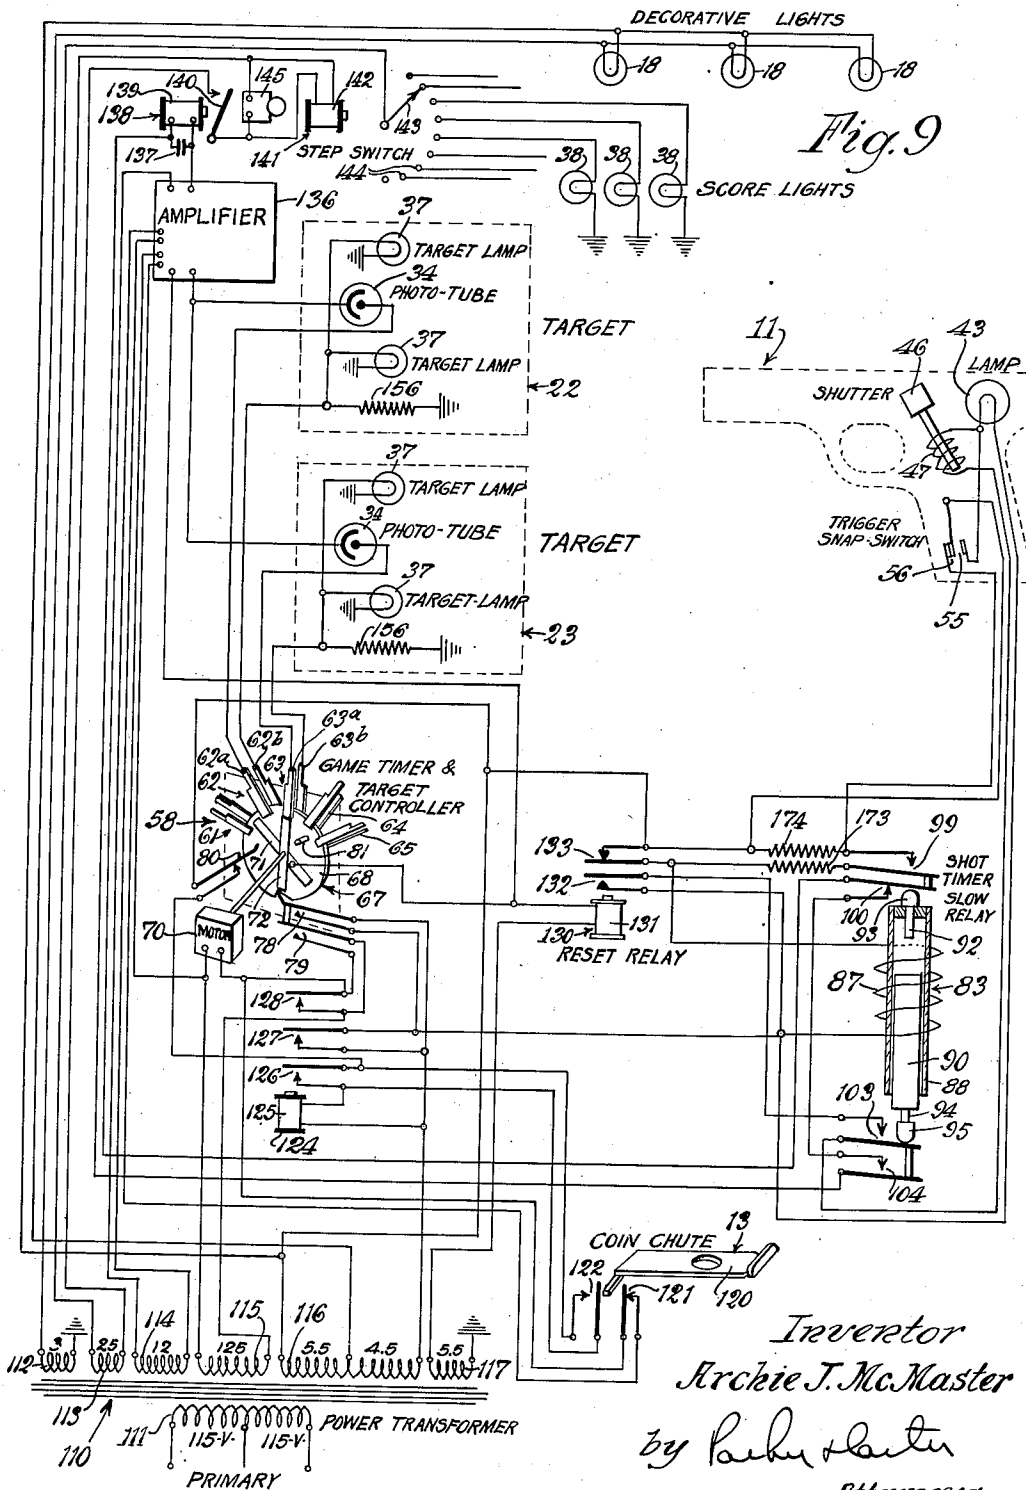 DECORATIVE LIGHTS
18 18 18
Fig. 9
139 140 145 142
138 143
137 141 STEP SWITCH
144
38 38 38
SCORE LIGHTS
AMPLIFIER 136
37
TARGET LAMP
34
PHOTO-TUBE
TARGET
37
TARGET LAMP
156
22
11 46 43
SHUTTER LAMP
47
TRIGGER
SNAP-SWITCH
56
55
37
TARGET LAMP
34
PHOTO-TUBE
TARGET
37
TARGET-LAMP
156
23
63a
62b 63b
62a 63
62
GAME TIMER &
TARGET
CONTROLLER
58 61 64
65
80 71 81
68
67
72
70 MOTOR 78
79
174 173 99
133
132
SHOT
TIMER
SLOW
RELAY
100
93
92
131
130
RESET RELAY
87 83
128
127
126
125
124
90
88
103 94
95
104
COIN CHUTE 13
122
121 120
114 115 116
112 3 25 12 125 5.5 4.5 5.5 117
113
110
111 115-V. 115-V.
POWER TRANSFORMER
PRIMARY
Inventor
Archie J. McMaster
by Parker & Carter